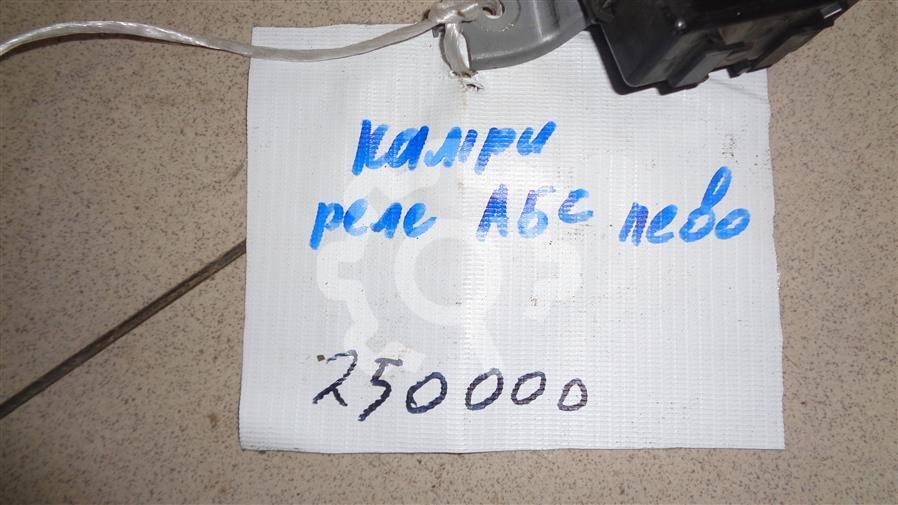 Камри
реле АБС лево
250000